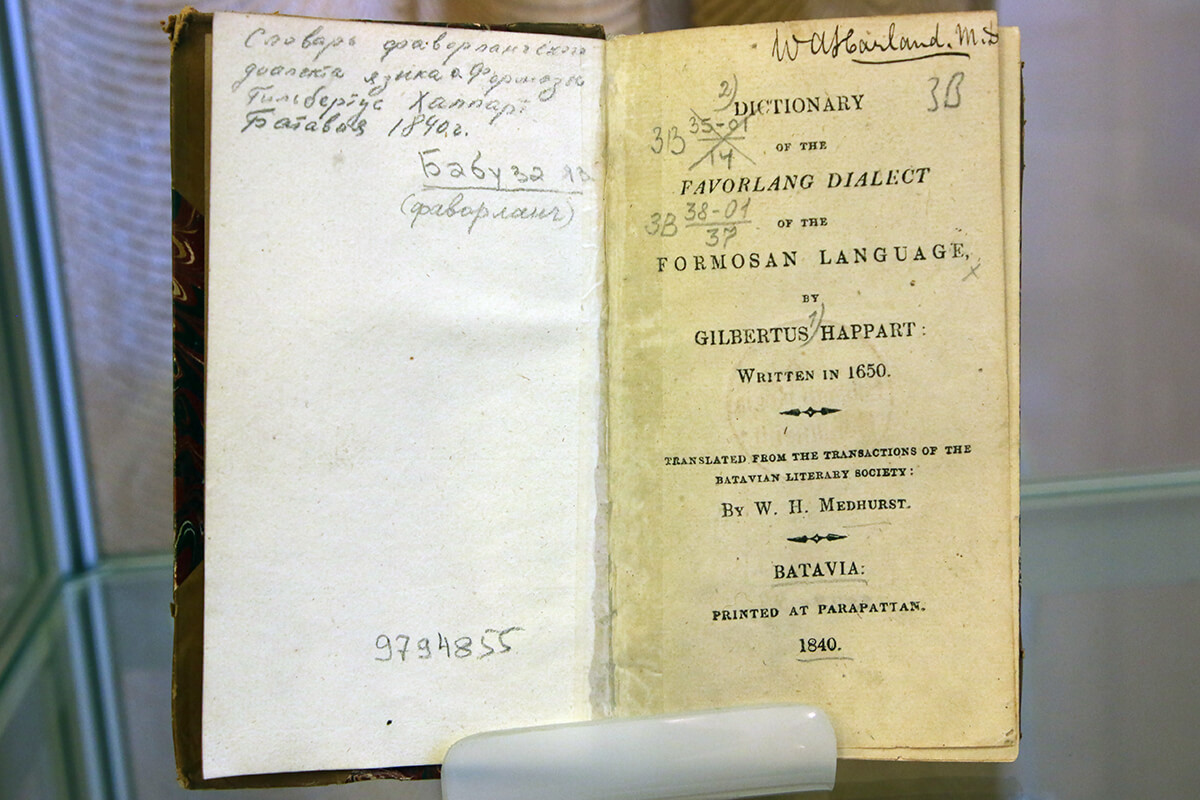 Словарь фаворлангского
диалекта языка о. Формозы
Гильбертус Хаппарт
Батавия 1840 г.
Бабуза яз
(фаворланг)
9794855
W A Harland. M.D
3В
2)
DICTIONARY
3В 35-01
14
OF THE
FAVORLANG DIALECT
3В 38-01
37
OF THE
FORMOSAN LANGUAGE,
BY
1)
GILBERTUS HAPPART:
WRITTEN IN 1650.
TRANSLATED FROM THE TRANSACTIONS OF THE
BATAVIAN LITERARY SOCIETY:
BY W. H. MEDHURST.
BATAVIA:
PRINTED AT PARAPATTAN.
1840.